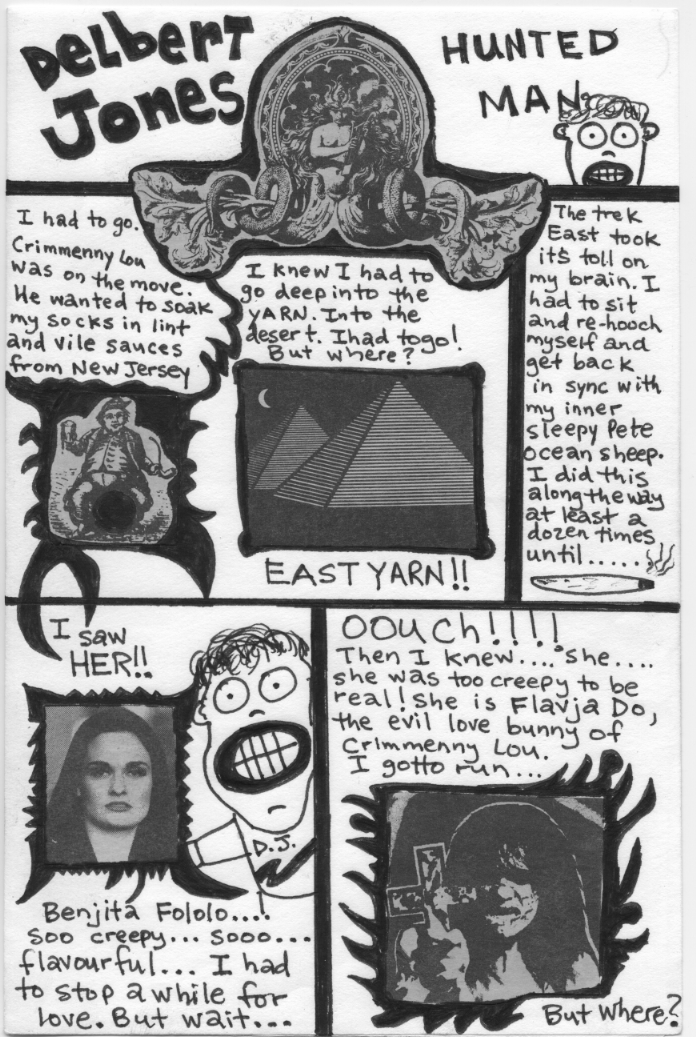 DELBERT
JONES
HUNTED
MAN
I had to go.
Crimmenny Lou
was on the move.
He wanted to soak
my socks in lint
and vile sauces
from New Jersey
I knew I had to
go deep into the
YARN. Into the
desert. I had to go!
But where?
EAST YARN!!
The trek
East took
it's toll on
my brain. I
had to sit
and re-hooch
myself and
get back
in sync with
my inner
sleepy Pete
ocean sheep.
I did this
along the way
at least a
dozen times
until.....
I saw
HER!!
D.J.
Benjita Fololo....
soo creepy... sooo...
flavourful... I had
to stop a while for
love. But wait...
OOUCh!!!!
Then I knew.... she....
she was too creepy to be
real! She is Flavja Do,
the evil love bunny of
Crimmenny Lou.
I gotto run...
But where?